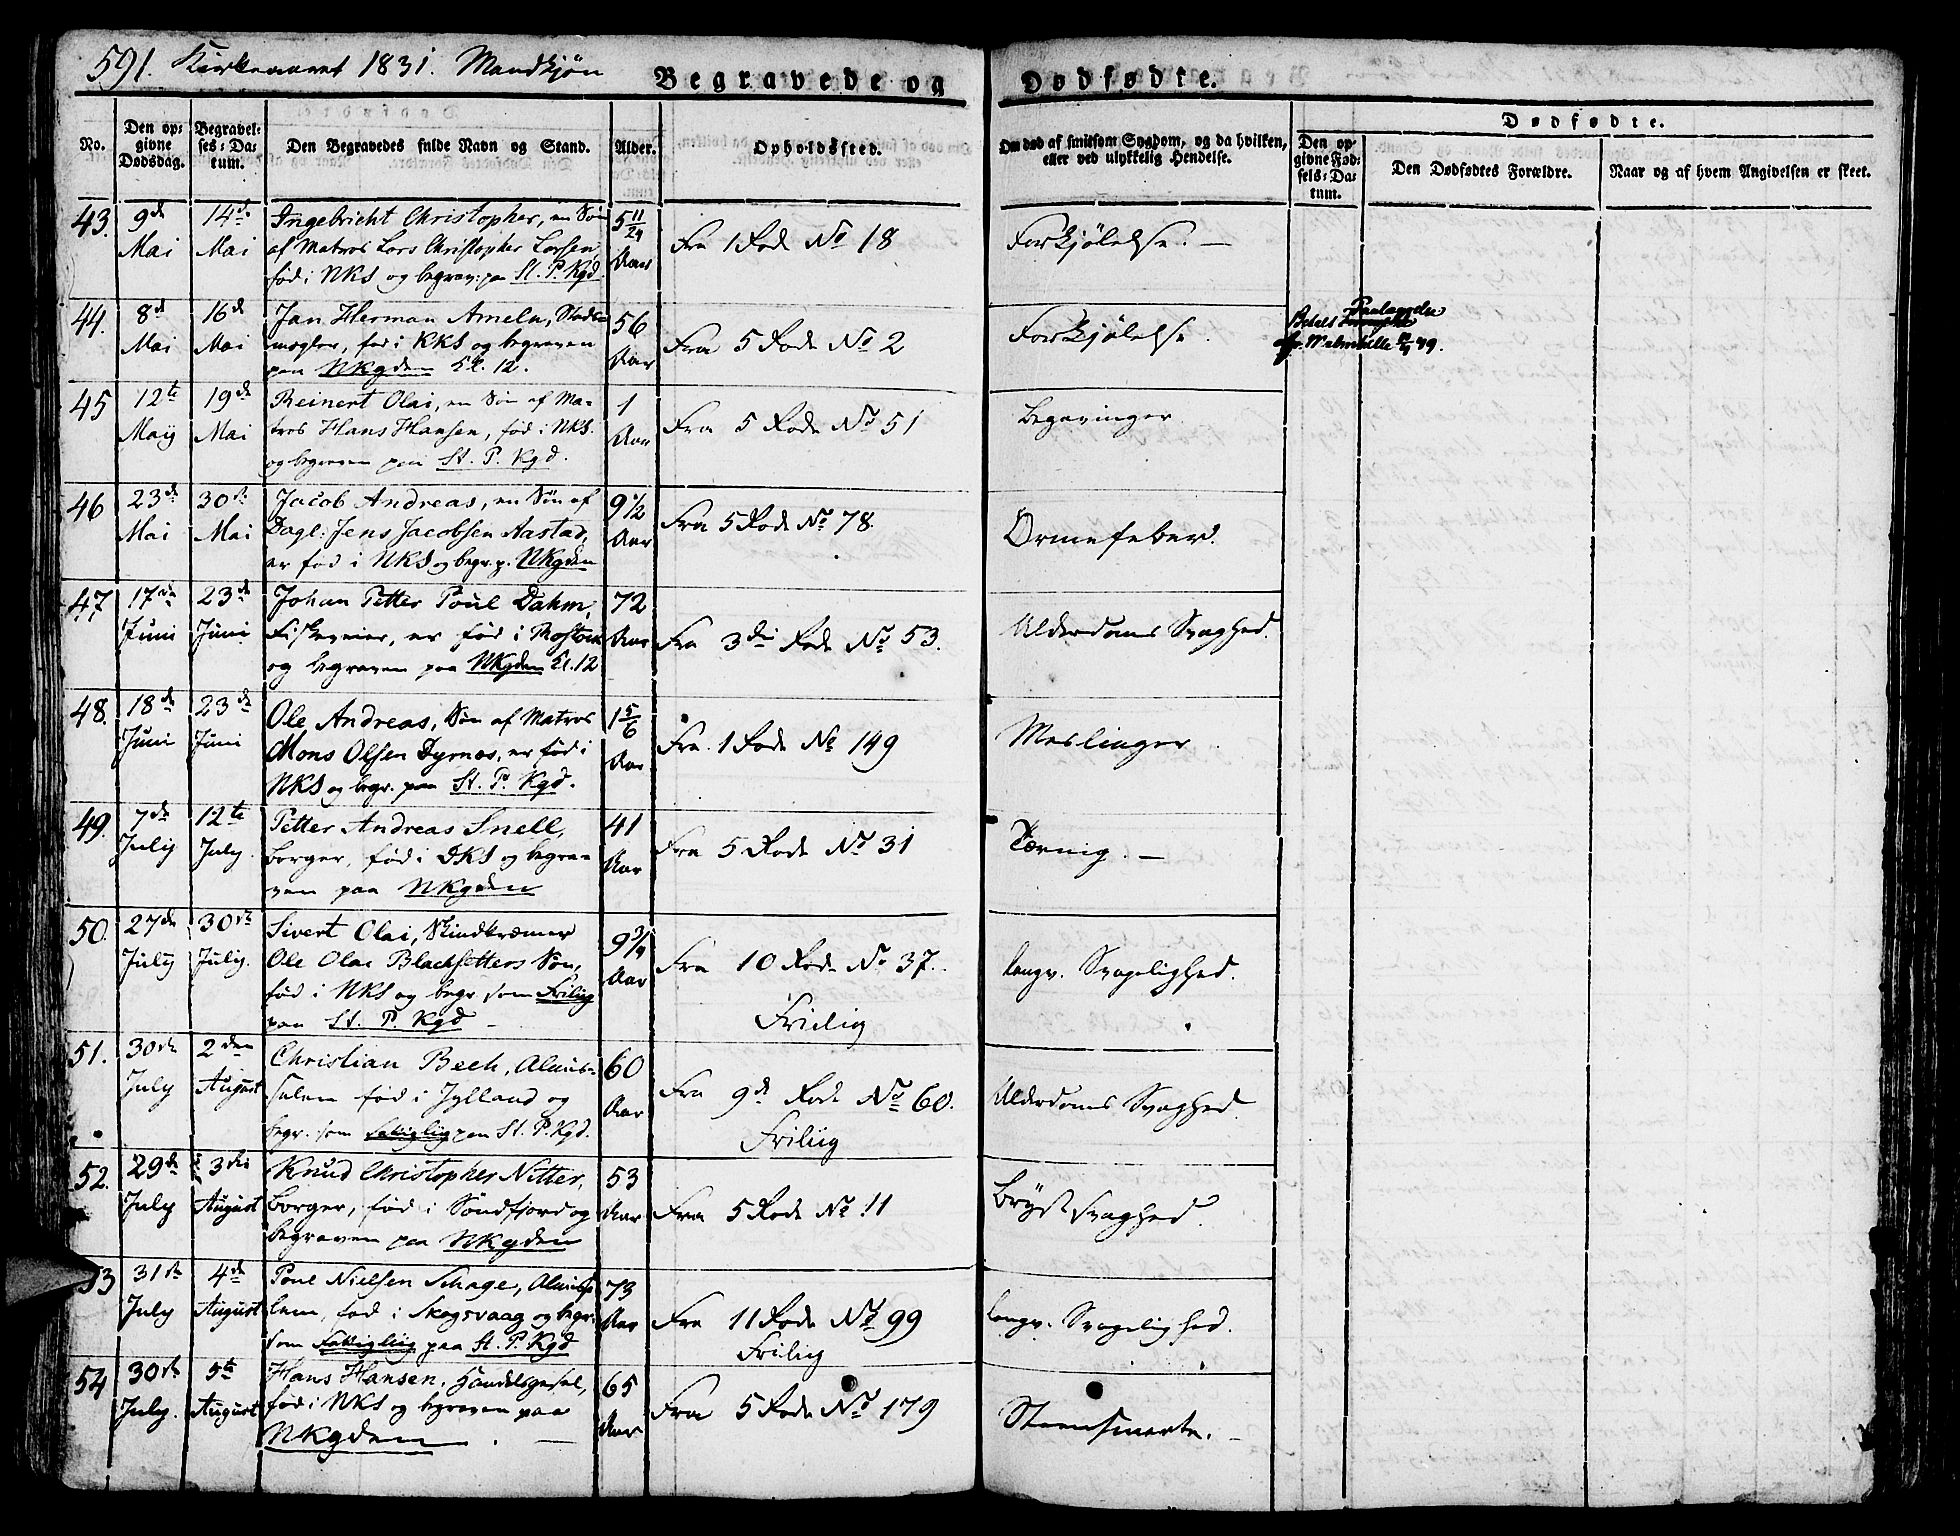 591. Kirkeaaret 1831. Mandkjøn
Begravede og Dødfødte.
No.
Den opgivne Dødsdag.
Begravelses-Datum.
Den Begravedes fulde Navn og Stand.
Alder.
Opholdssted.
Om død af smitsom Sygdom, og da hvilken, eller ved ulykkelig Hendelse.
Dødfødte.
Den opgivne Fødsels-Datum.
Den Dødfødtes Forældre.
Naar og af hvem Angivelsen er skeet.
43. 9de Mai 14de Mai
Ingebricht Christopher, en Søn
af Matros Lars Christopher Larsen,
fød i NKS og begrav: paa St. P. Kgd.
5 11/24 Aar
Fra 1 Rode No 18
Forkjølelse. —
44. 8de Mai 16de Mai
Jan Herman Ameln, Stads-
mægler, fød i KKS og begraven
paa NKgden Kl. 12.
56 Aar
Fra 5 Rode No 2
Forkjølelse.
Paalangdes
45 12te Maij 19de Mai
Reinert Olai, en Søn af Ma-
tros Hans Hansen, fød i NKS.
og begraven paa St. P. Kgd.
1 Aar
Fra 5 Rode No 51
Begavinger.
46 23de Mai 30te Mai
Jacob Andreas, en Søn af
Dagl: Jens Jacobsen Aastad,
er fød i NKS og begr. p. NKgden
9 1/2 Aar
Fra 5 Rode No 78.
Ormefeber.
47 17de Juni 23de Juni
Johan Petter Poul Dahm,
Fiskeveier, er fød i
og begraven paa NKgden Kl. 12
72 Aar
Fra 3die Rode No 53.
Alderdoms Svaghed.
48. 18de Juni 23de Juni
Ole Andreas, Søn af Matros
Mons Olsen Dyrnes, er fød i
NKS og begr. paa St. P. Kgd.
1 5/6 Aar
Fra 1 Rode No 149
Meslinger
49. 7de July 12te July.
Petter Andreas Snell,
Borger, fød i DKS og begra-
ven paa NKgden
41 Aar
Fra 5 Rode No 31
Tæring. —
50. 27de July 30te July.
Sivert Olai, Skindkræmer
Ole Olai Blacksetters Søn,
fød i NKS og begr. som Frilig
paa St. P. Kgd —
9 3/4 Aar
Fra 10 Rode No 37.
Frilig
langv. Svagelighed.
51. 30te July 2den August
Christian Bech, Almis-
salem fød i Jylland og
begr. som Fattiglig paa St. P. Kgd.
60 Aar
Fra 9de Rode No 60.
Frilig
Alderdoms Svaghed.
52. 29de July 3die August
Knud Christopher Nitter,
Borger, fød i Søndfjord og
begraven paa NKgden
53 Aar
Fra 5 Rode No 11
Brystsvaghed.
53 31te July 4de August
Poul Nielsen Schage, Almis-
lem, fød i Skogsvaag og begr.
som Fattiglig paa St. P. Kgd
73 Aar
Fra 11 Rode No 99
Frilig
langv. Svagelighed.
54 30te July. 5te August
Hans Hansen, Handelsgesel,
fød i NKS og begraven paa
NKgden. —
65 Aar
Fra 5 Rode No 179
Steensmerte. —